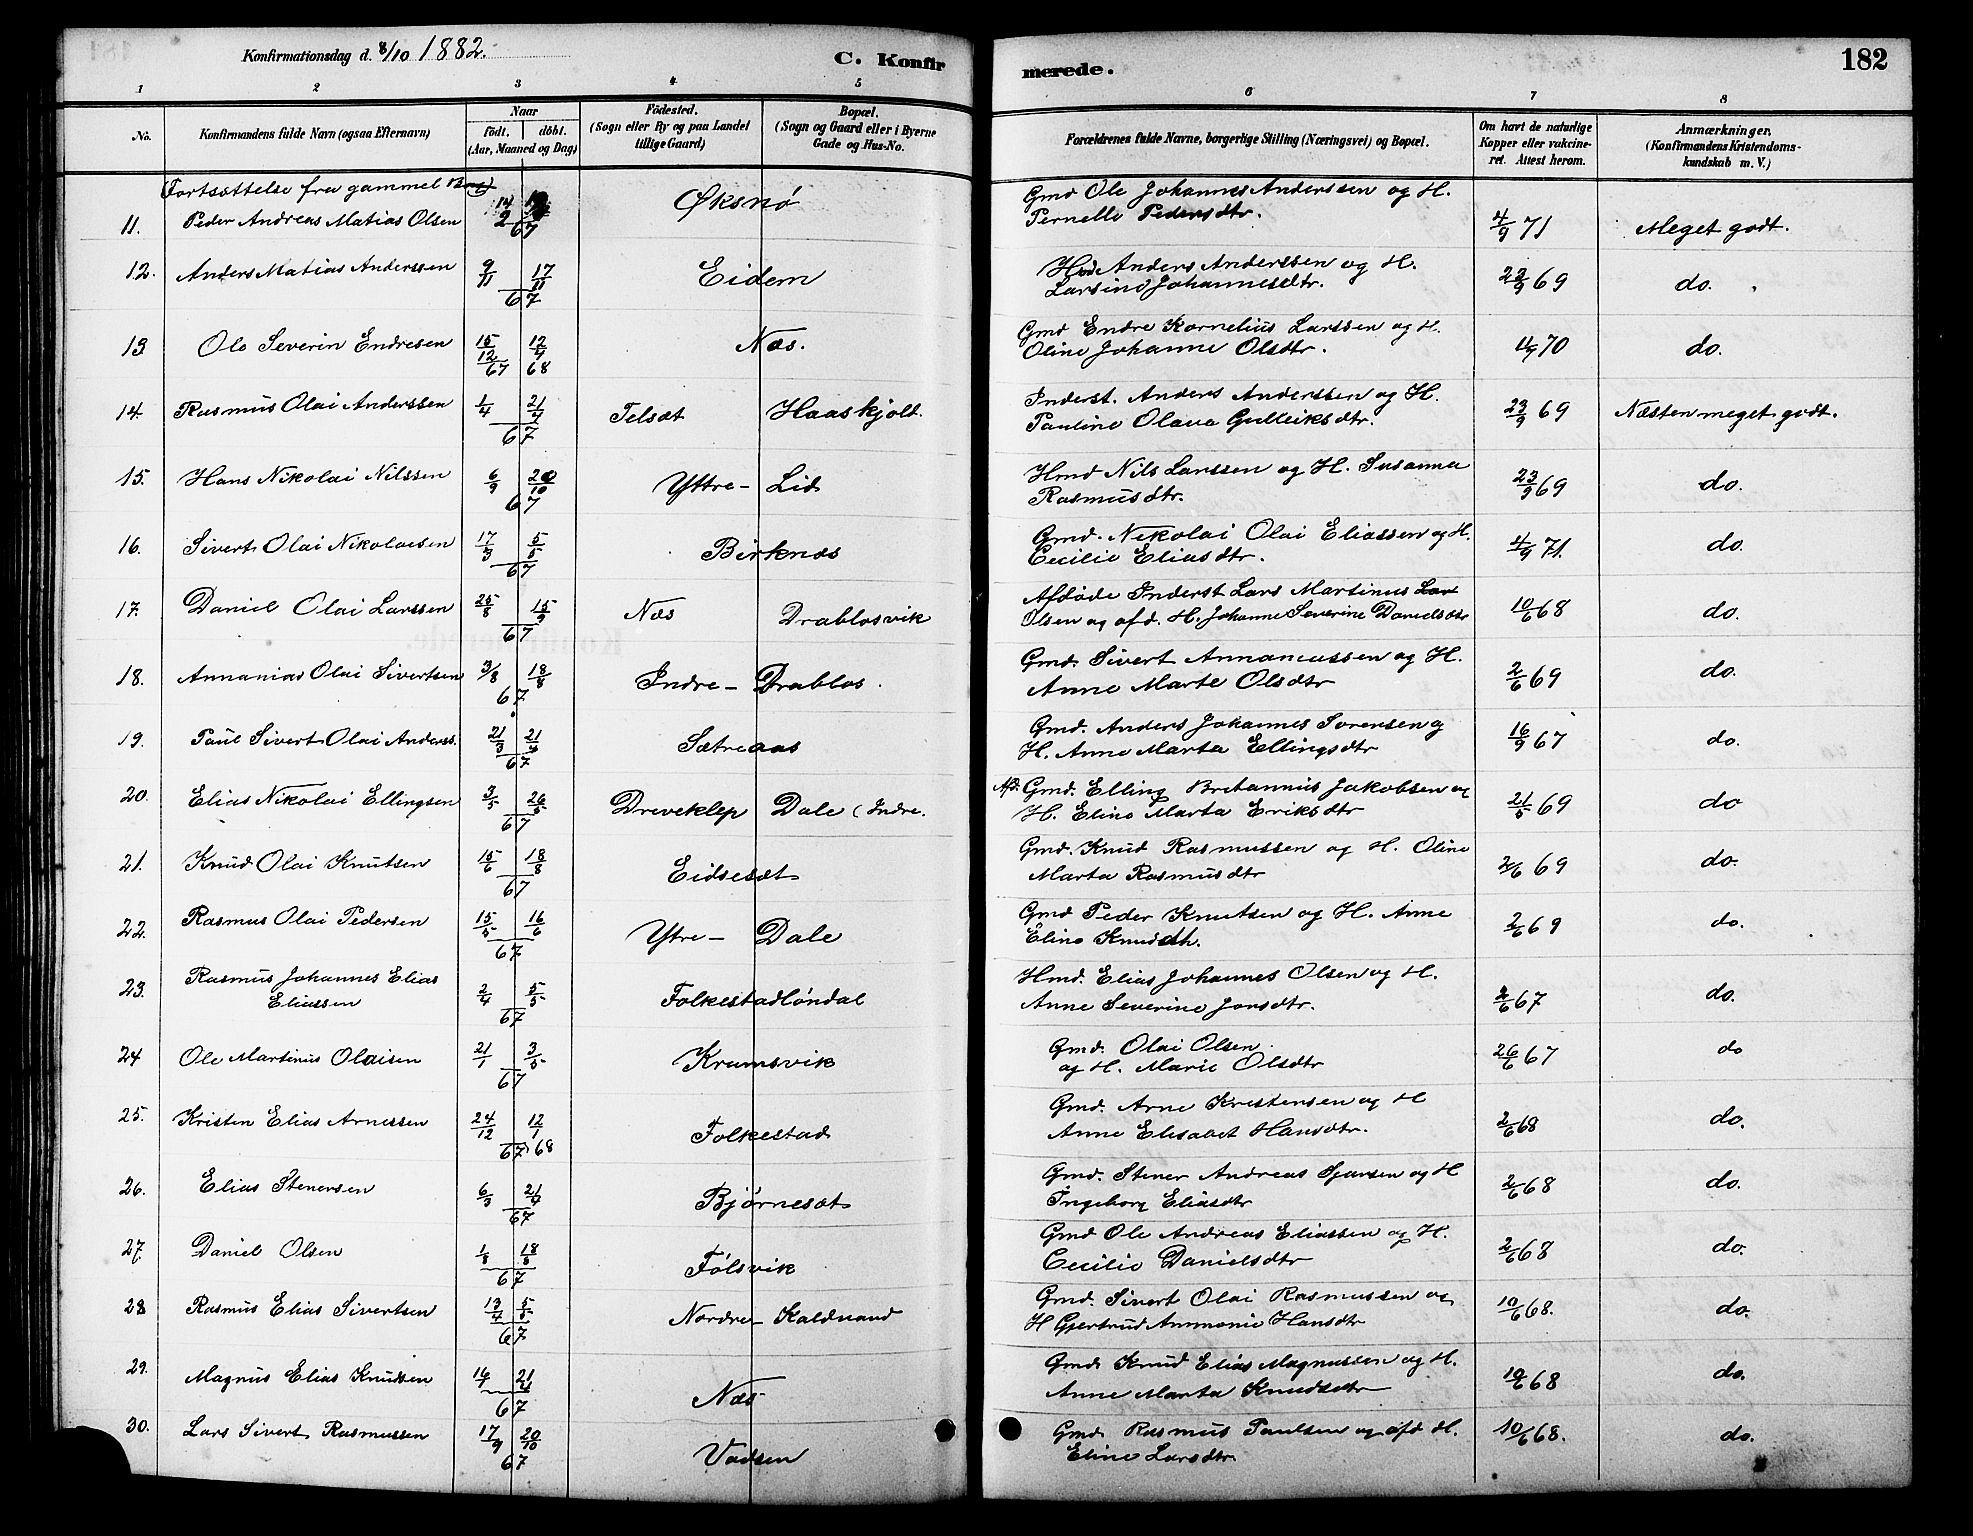 Konfirmationsdag d. 8/10 1882.
C. Konfirmerede.
182
1 2 3 4 5 6 7 8
No.
Konfirmandens fulde Navn (ogsaa Efternavn)
Naar
født. | døbt.
(Aar, Maaned og Dag)
Fødested.
(Sogn eller By og paa Landet
tillige Gaard)
Bopæl.
(Sogn og Gaard eller i Byerne
Gade og Hus-No.
Forældrenes fulde Navne, borgerlige Stilling (Næringsvei) og Bopæl.
Om havt de naturlige
Kopper eller vakcine-
ret. Attest herom.
Anmærkninger.
(Konfirmandens Kristendoms-
kundskab m. V.)
Fortsættelse fra gammel Bog)
11. Peder Andreas Matias Olsen 14/2 67 Øksnø Gmd Ole Johannes Anderssen og H.
Pernelle Pedersdtr. 4/9 71 Meget godt.
12. Anders Matias Anderssen 9/11 17/11 67 Eidem Hmd Anders Anderssen og H.
Larsine Johannesdtr. 23/9 69 do.
13 Ole Severin Endresen 15/12 67 12/4 68 Næs. Gmd Endre Kornelius Larssen og H.
Oline Johanne Olsdtr. 4/9 70 do.
14. Rasmus Olai Anderssen 1/4 21/4 67 Telsæt Haaskjolt. Inderst. Anders Anderssen og H.
Pauline Olava Gulleiksdtr. 23/9 69 Næsten meget godt.
15. Hans Nikolai Nilssen 6/9 20/10 67 Yttre- Lid Hmd Nils Larssen og H. Susanna
Rasmusdtr. 23/9 69 do.
16. Sivert Olai Nikolaisen 17/3 5/5 67 Birknæs Gmd. Nikolai Olai Eliassen og H.
Cecilie Eliasdtr. 4/9 71. do.
17. Daniel Olai Larssen 25/8 15/9 67 Næs Drabløsvik Afdøde Inderst Lars Martinus Lar
Olsen og afd. H. Johanne Severine Danielsdtr 10/6 68 do.
18. Annanias Olai Sivertsen 3/8 18/8 67 Indre- Drabløs. Gmd. Sivert Annaniassen og H.
Anne Marte Olsdtr 2/6 69 do.
19. Paul Sivert Olai Anderss. 21/3 21/4 67 Sætreaas Gmd. Anders Johannes Sørensen og
H. Anne Marta Ellingsdtr 16/9 67 do.
20. Elias Nikolai Ellingsen 3/5 26/5 67 Dreveklep Dale (Indre. Afd. Gmd. Elling Britannius Jakobsen og
H. Eline Marta Eriksdtr 21/5 69 do
21. Knud Olai Knutsen 15/6 18/8 67 Eidsesæt Gmd. Knud Rasmussen og H. Oline
Marta Rasmusdtr 2/6 69 do.
22. Rasmus Olai Pedersen 15/5 16/6 67 Ytre- Dale Gmd Peder Knutsen og H. Anne
Eline Knudsdtr. 2/6 69 do.
23. Rasmus Johannes Elias
Eliassen 2/4 5/5 67 Folkestadløndal Hmd. Elias Johannes Olsen og H.
Anne Severine Jonsdtr. 2/6 67 do.
24 Ole Martinus Olaisen 21/1 3/5 67 Krumsvik Gmd. Olai Olsen
og H. Marie Olsdtr 26/6 67 do
25. Kristen Elias Arnessen 24/12 67 12/1 68 Folkestad Gmd. Arne Kristensen og H
Anne Elisabet Hansdtr. 2/6 68 do.
26. Elias Stenersen 6/3 21/4 67 Bjørnesæt Gmd. Stener Andreas og H
Ingeborg Eliasdtr 2/6 68 do.
27. Daniel Olsen 1/8 18/8 67 Følsvik Gmd Ole Andreas Eliassen og H.
Cecilie Danielsdtr 2/6 67 do.
28 Rasmus Elias Sivertsen 13/4 5/5 67 Nordre- Kaldvand Gmd. Sivert Olai Rasmussen og
H Gjertrud Ammonie Hansdtr 10/6 68. do.
29. Magnus Elias Knudsen 21/4 67 Næs Gmd. Knud Elias Magnussen og H.
Anne Marta Knudsdtr 10/6 68 do.
30. Lars Sivert Rasmussen 17/9 20/10 67 Vadsen Gmd. Rasmus Paulsen og afd H.
Eline Larsdtr 10/6 68. do.